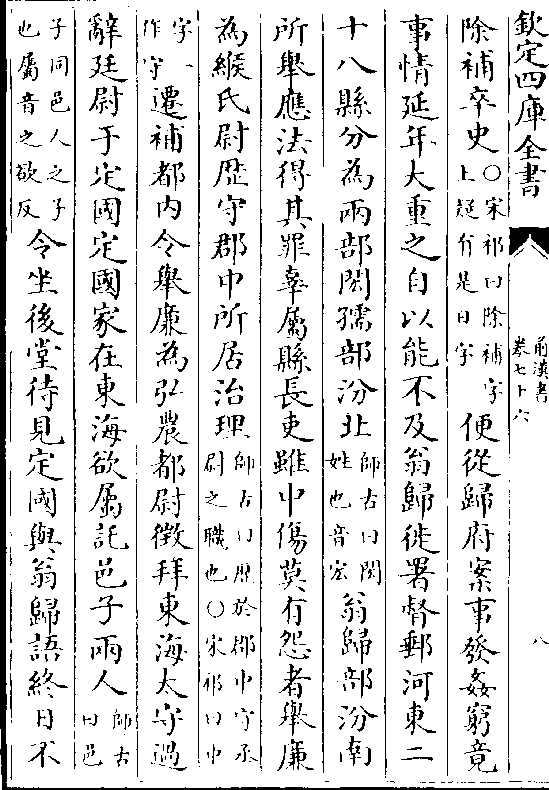 欽定四庫全書
前漢書
卷七十六
八
除補卒史〇宋祁曰除補字上疑有是日字便從歸府案事發姦窮竟
事情延年大重之自以能不及翁歸徙署督郵河東二
十八縣分為兩部閎孺部汾北師古曰閎姓也音宏翁歸部汾南
所舉應法得其罪辜屬縣長吏雖中傷莫有怨者舉廉
為緱氏尉歴守郡中所居治理師古曰歴於郡中守丞尉之職也〇宋祁曰中
字一作守遷補都内令舉廉為弘農都尉徵拜東海太守過
辭廷尉于定國定國家在東海欲屬託邑子兩人師古曰邑
子同邑人之子也屬音之欲反令坐後堂待見定國與翁歸語終日不